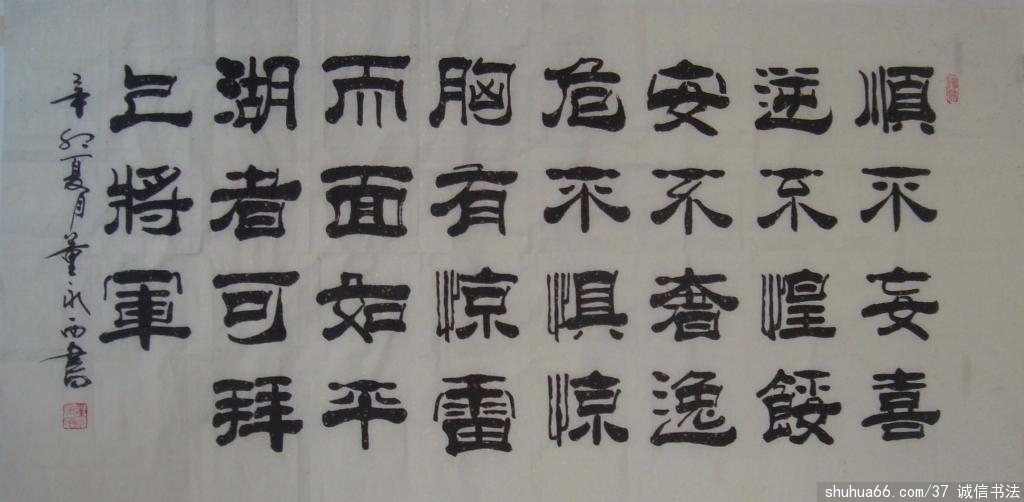 順不妄喜
逆不惶餒
安不奢逸
危不惧惊
胸有惊雷
而面如平
湖者可拜
上將軍
辛卯夏月董永西書
shuhua66.com/37 诚信书法